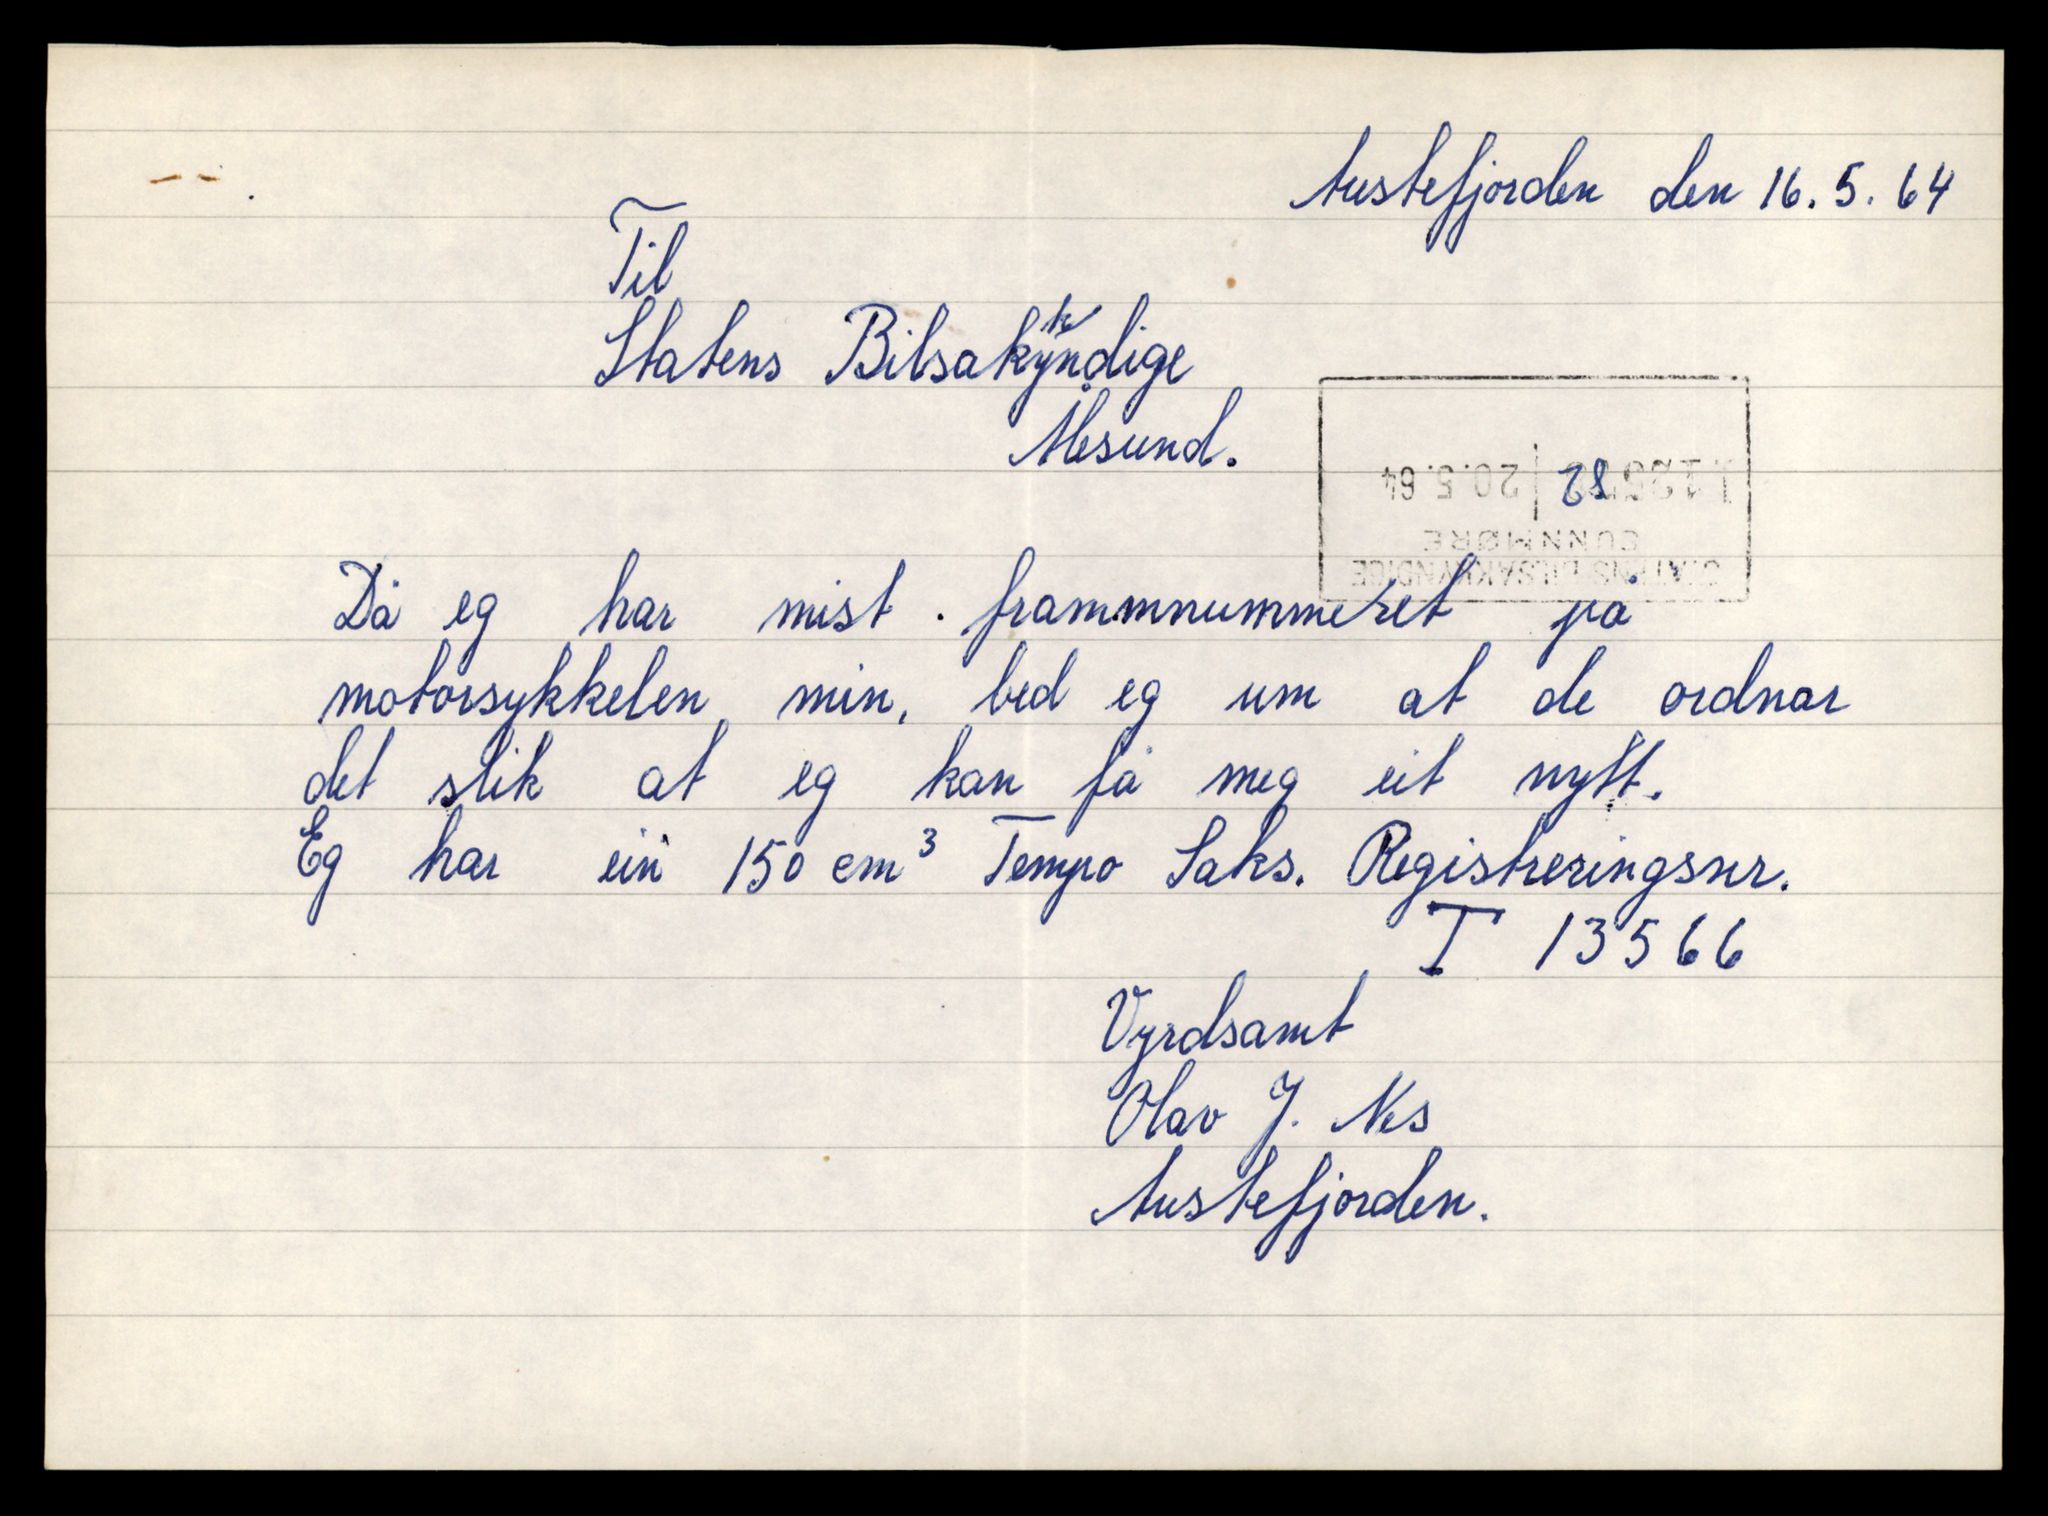 Austefjorden den 16.5.64
Til
Statens Bilsakkyndige
Ålesund.
STATENS BILSAKKYNDIGE
SUNNMØRE
82 | 20.5.64
Då eg har mist frammnummeret på
motorsykkelen min, bed eg um at de ordnar
det slik at eg kan få meg eit nytt.
Eg har ein 150 cm³ Tempo Saks. Registreringsnr.
T 13566
Vyrdsamt
Olav J. Nes
Austefjorden.